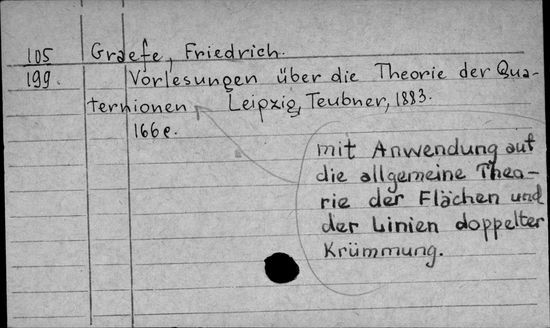 105 Graefe, Friedrich.
199. Vorlesungen über die Theorie der Qua-
ternionen Leipzig, Teubner, 1883.
166 e.
mit Anwendung auf
die allgemeine Theo-
rie der Flächen und
der Linien doppelter
Krümmung.